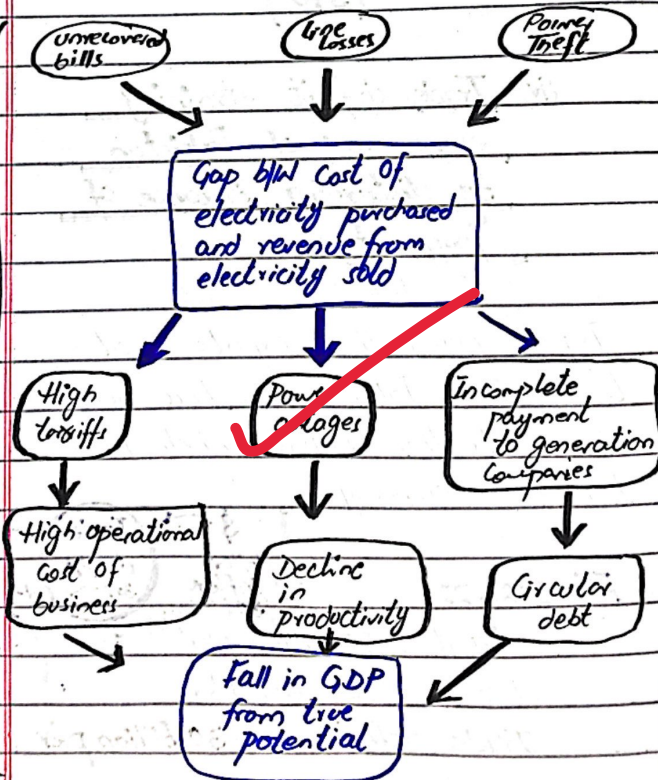 unrecovered
bills
Line
Losses
Power
Theft
Gap b/w Cost of
electricity purchased
and revenue from
electricity sold
High
tarriffs
Power
outages
Incomplete
payment
to generation
Companies
High operational
Cost of
business
Decline
in
productivity
Circular
debt
Fall in GDP
from true
potential